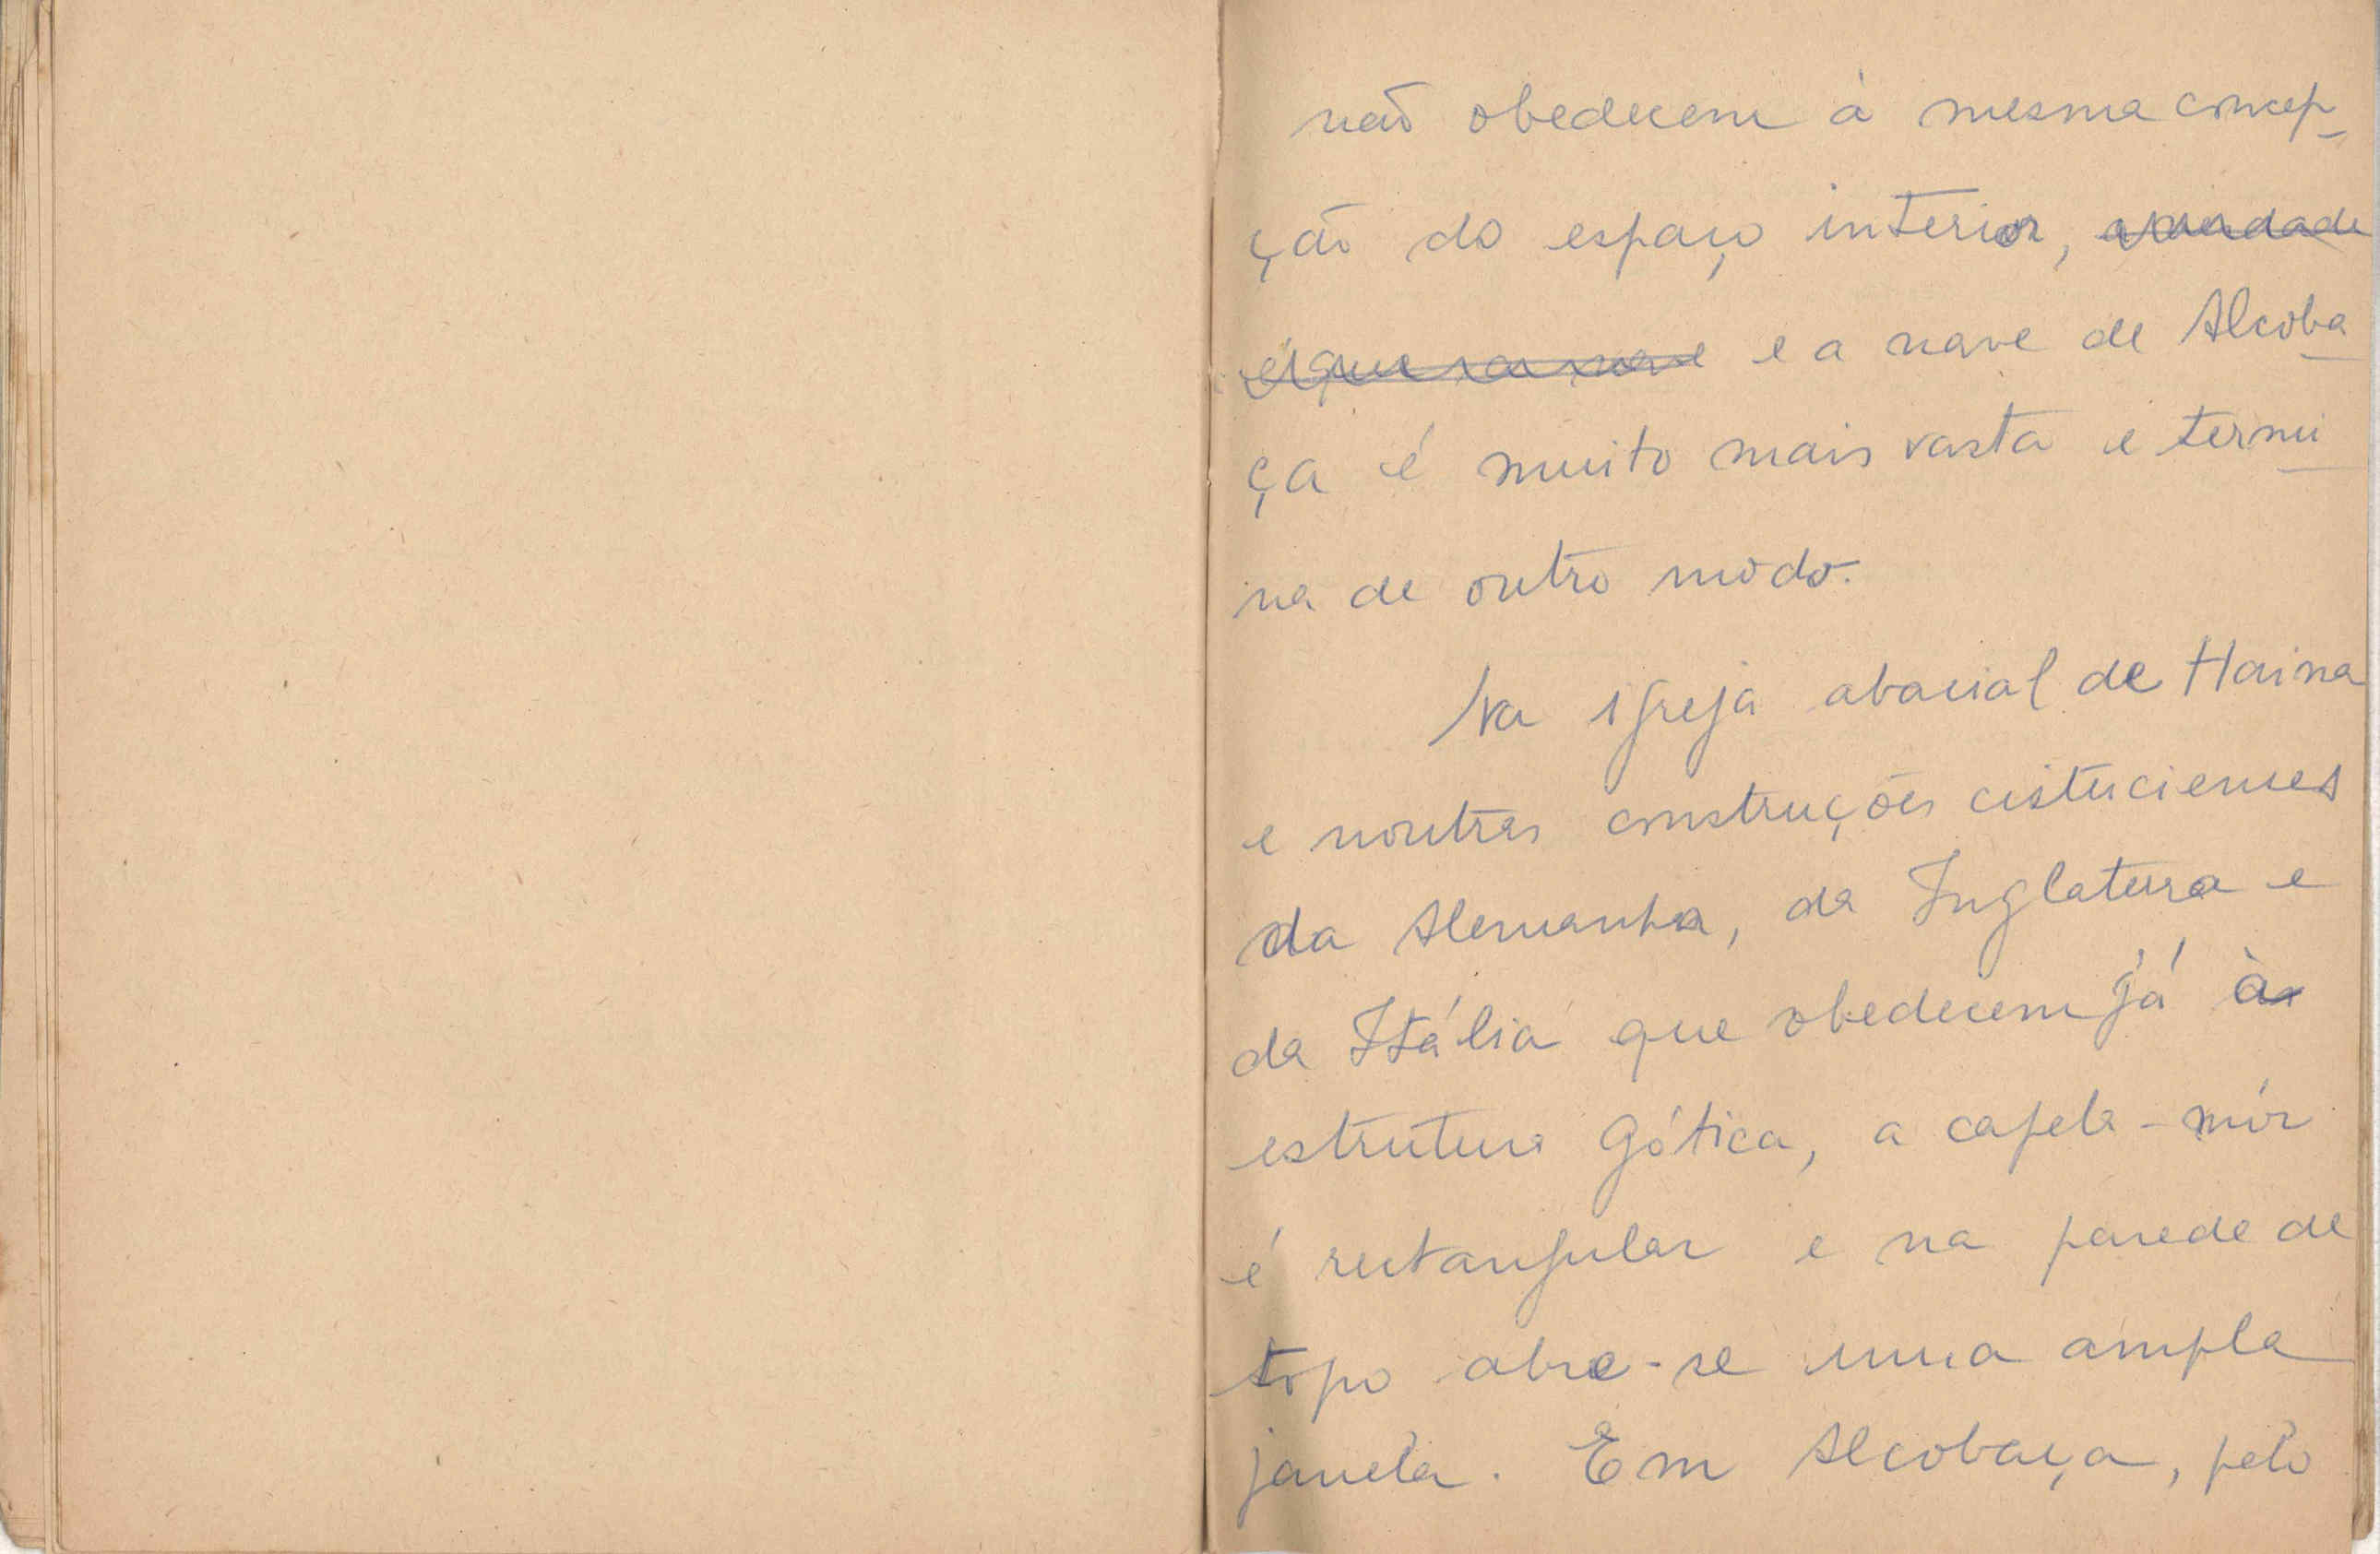 não obedecem à mesma concep-
ção do espaço interior, a verdade
é que a nave e a nave de Alcoba
ça é muito mais vasta e termi
na de outro modo.
Na igreja abacial de Haina
e noutras construções cistucienses
da Alemanha, da Inglaterra e
da Itália que obedecem já à
estrutura gótica, a capela-mór
é rectangular e na parede de
topo abre-se uma ampla
janela. Em Alcobaça, pelo